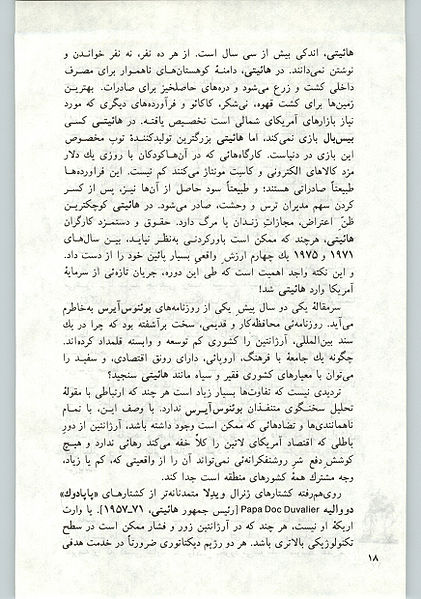 هائیتی، اندکی بیش از سی سال است. از هر ده نفر، نه نفر خواندن و
نوشتن نمی‌دانند. در هائیتی، دامنهٔ کوهستان‌های ناهموار برای مصرف
داخلی کشت و زرع می‌شود و دره‌های حاصلخیز برای صادرات. بهترین
زمین‌ها برای کشت قهوه، نی‌شکر، کاکائو و فرآورده‌های دیگری که مورد
نیاز بازارهای آمریکای شمالی است تخصیص یافته. در هائیتی کسی
بیس‌بال بازی نمی‌کند، اما هائیتی بزرگترین تولیدکنندهٔ توپ مخصوص
این بازی در دنیاست. کارگاه‌هائی که در آن‌ها کودکان با روزی یك دلار
مزد کالاهای الکترونی و کاست مونتاژ می‌کنند کم نیست. این فراورده‌ها
طبیعتاً صادراتی هستند؛ و طبیعتاً سود حاصل از آن‌ها نیز، پس از کسر
کردن سهم مدیران ترس و وحشت، صادر می‌شود. در هائیتی کوچکترین
ظنّ اعتراض، مجازاتِ زندان یا مرگ دارد. حقوق و دستمزد کارگران
هائیتی، هرچند که ممکن است باورکردنی به‌نظر نیاید، بین سال‌های
۱۹۷۱ و ۱۹۷۵ یك چهارم ارزش واقعی بسیار پائین خود را از دست داد.
و این نکته واجد اهمیت است که طی این دوره، جریان تازه‌ئی از سرمایهٔ
آمریکا وارد هائیتی شد!
سرمقالهٔ یکی دو سال پیش یکی از روزنامه‌های بوئنوس‌آیرس به‌خاطرم
می‌آید. روزنامه‌ئی محافظه‌کار و قدیمی، سخت برآشفته بود که چرا در یك
سند بین‌المللی، آرژانتین را کشوری کم توسعه و وابسته قلمداد کرده‌اند.
چگونه یك جامعهٔ با فرهنگ، اروپائی، دارای رونق اقتصادی، و سفید را
می‌توان با معیارهای کشوری فقیر و سیاه مانند هائیتی سنجید؟
تردیدی نیست که تفاوت‌ها بسیار زیاد است هر چند که ارتباطی با مقولهٔ
تحلیل سخنگوی متنفذان بوئنوس‌آیرس ندارد. با وصف این، با تمام
ناهمانندی‌ها و تضادهائی که ممکن است وجود داشته باشد، آرژانتین از دورِ
باطلی که اقتصاد آمریکای لاتین را کلاً خفه می‌کند رهائی ندارد و هیچ
کوششِ دفعِ شرِ روشنفکرانه‌ئی نمی‌تواند آن را از واقعیتی که، کم یا زیاد،
وجه مشترك همهٔ کشورهای منطقه است جدا کند.
روی‌هم‌رفته کشتارهای ژنرال ویدلا متمدنانه‌تر از کشتارهای «پاپادوك»
دووالیه Papa Doc Duvalier [رئیس جمهور هائیتی، ۷۱ـ۱۹۵۷]. یا وارث
اریکهٔ او نیست، هر چند که در آرژانتین زور و فشار ممکن است در سطح
تکنولوژیکی بالاتری باشد. هر دو رژیم دیکتاتوری ضرورتاً در خدمت هدفی
۱۸